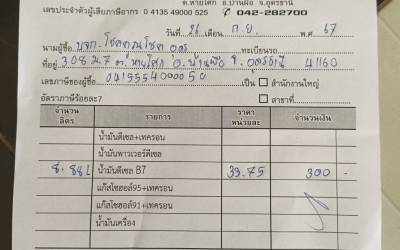 ต.หายโศก อ.บ้านผือ จ.อุดรธานี
เลขประจำตัวผู้เสียภาษีอากร 0 4135 49000 525 042-282700
วันที่ 26 เดือน ก.ย. พ.ศ. 67
นามผู้ซื้อ ทะเบียนรถ
ที่อยู่ 308 ม.7 ต.หายโศก อ.บ้านผือ จ.อุดรธานี 41160
เลขภาษีของผู้ซื้อ เป็น สำนักงานใหญ่
อัตราภาษีร้อยละ7 สาขาที่
จำนวน ลิตร รายการ ราคา หน่วยละ จำนวนเงิน
น้ำมันดีเซล+เทครอน
น้ำมันพาวเวอร์ดีเซล
8.88L น้ำมันดีเซล B7 33.75 300 -
แก๊สโซฮอล์95+เทครอน
แก๊สโซฮอล์91+เทครอน
น้ำมันเครื่อง